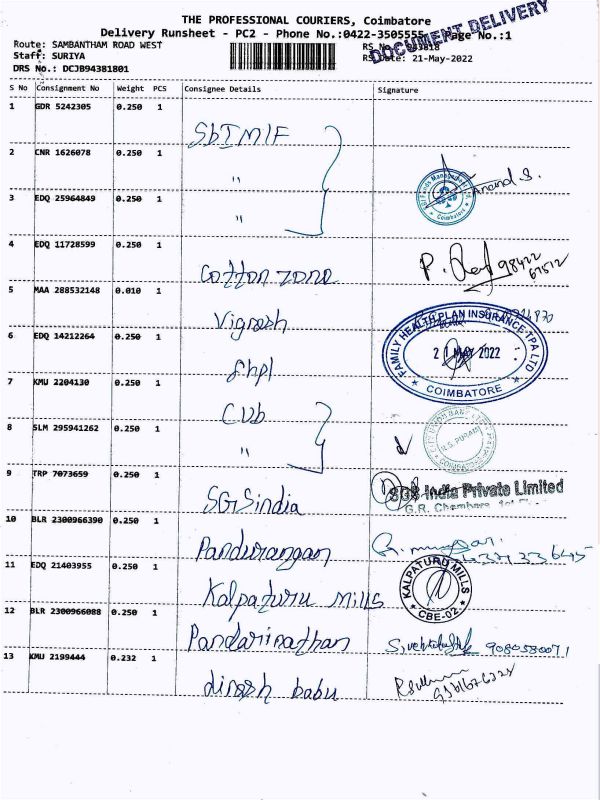 THE PROFESSIONAL COURIERS, Coimbatore
DOCUMENT DELIVERY
Delivery Runsheet - PC2 - Phone No.:0422-3505555 Page No.:1
Route: SAMBANTHAM ROAD WEST
RS No.: 943818
Staff: SURIYA
RS Date: 21-May-2022
DRS No.: DCJB94381801
S No Consignment No Weight PCS Consignee Details Signature
1 GDR 5242305 0.250 1
SbIMIF
2 CNR 1626078 0.250 1
"
Coimbatore
Anand S.
3 EDQ 25964849 0.250 1
"
4 EDQ 11728599 0.250 1
Cotton zone
P. 98422
67512
5 MAA 288532148 0.010 1
Vignesh
6 EDQ 14212264 0.250 1
FAMILY HEALTH PLAN INSURANCE TPA LTD
21 MAY 2022
COIMBATORE
fhpl
7 KMU 2204130 0.250 1
CUb
8 SLM 295941262 0.250 1
"
R.S. PURAM
COIMBATORE
9 TRP 7073659 0.250 1
SGSindia
SGS India Private Limited
G.R. Chambers
10 BLR 2300966390 0.250 1
Pandurangan
11 EDQ 21403955 0.250 1
Kalpaturu Mills
KALPATURU MILLS
CBE-02
12 BLR 2300966088 0.250 1
Pandarinathan
9080580071
13 KMU 2199444 0.232 1
dinesh babu